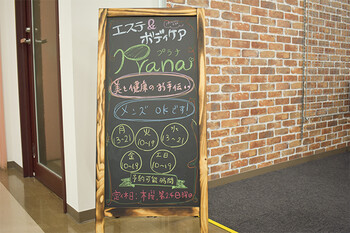 エステ&
ボディケア
プラナ
Prana
美と健康のお手伝い
メンズOKです!
月 火 水
13~21 10~19 13~21
金 土日
10~19 10~19
予約可能時間
定休日:木曜、第2・4日曜